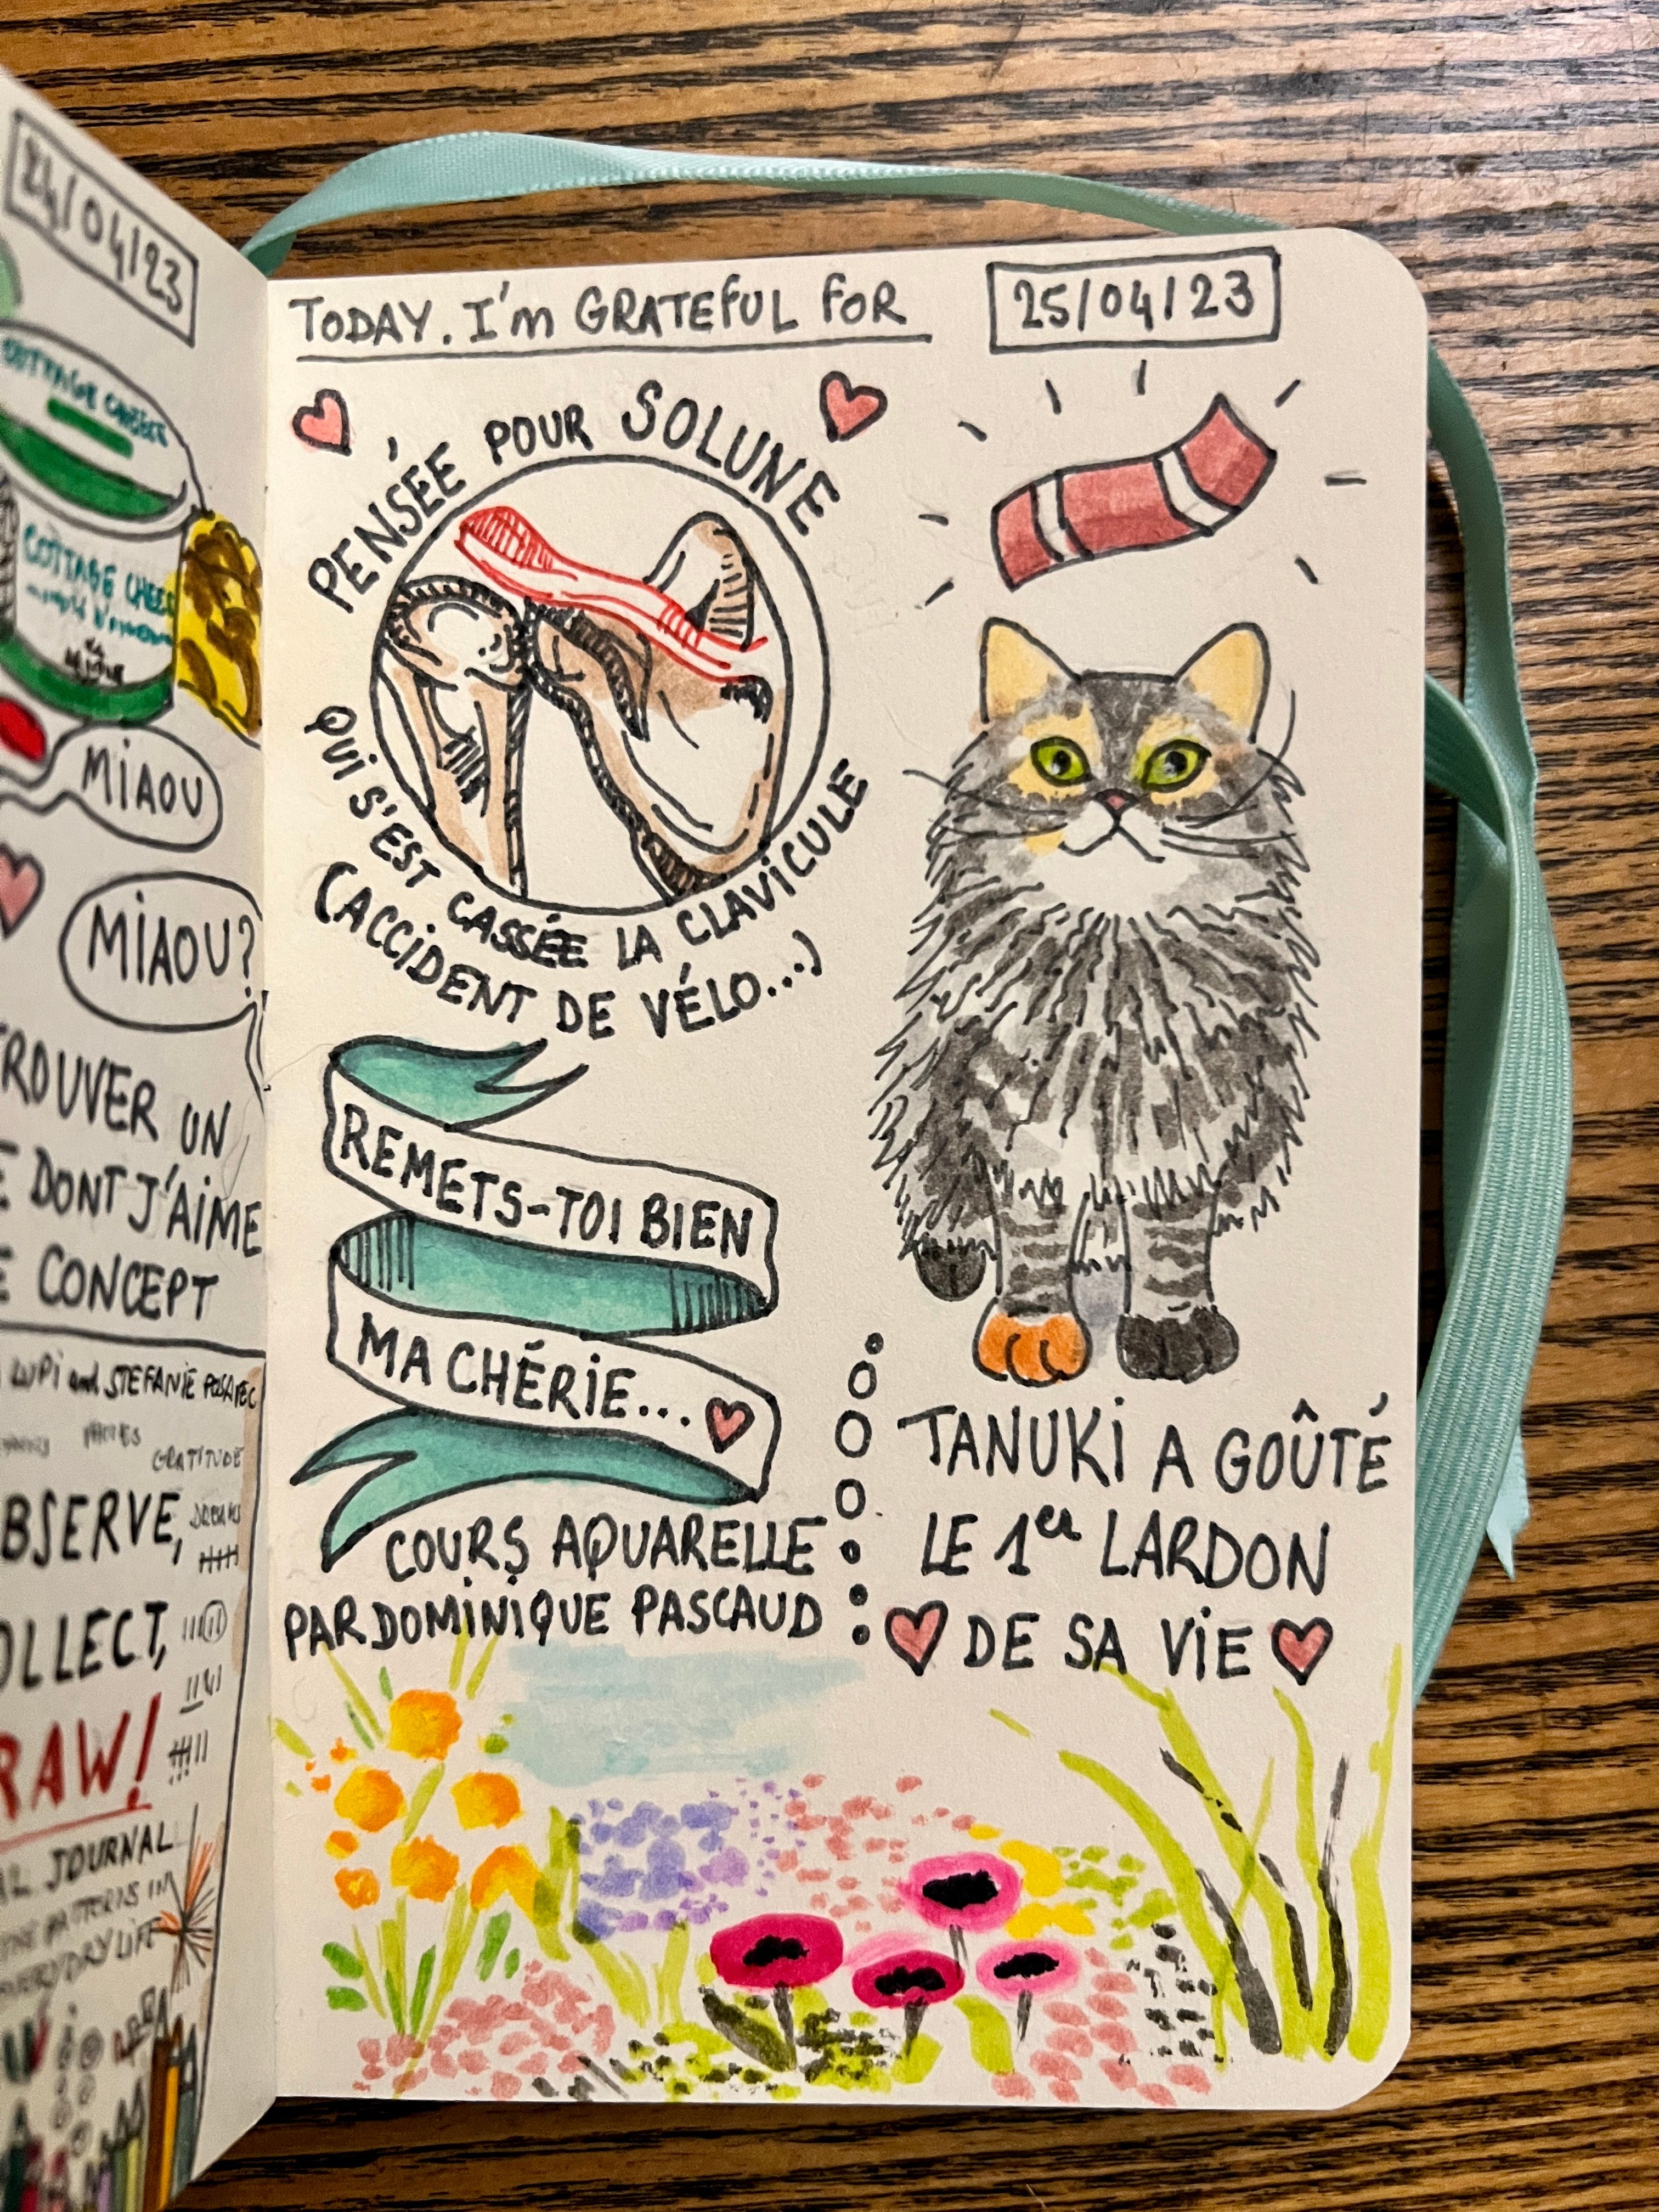 24/04/23
COTTAGE CHEESE
COTTAGE CHEESE
MIAOU
MIAOU?
TROUVER UN
DONT J'AIME
CONCEPT
LUPI and STEFANIE POSAVEC
GRATITUDE
OBSERVE,
DREAMS
COLLECT,
DRAW!
JOURNAL
PATTERNS IN
EVERYDAY LIFE
TODAY. I'm GRATEFUL FOR
25/04/23
PENSÉE POUR SOLUNE
QUI S'EST CASSÉE LA CLAVICULE
(ACCIDENT DE VÉLO...)
REMETS-TOI BIEN
MA CHÉRIE...
COURS AQUARELLE
PAR DOMINIQUE PASCAUD
TANUKI A GOÛTÉ
LE 1er LARDON
DE SA VIE